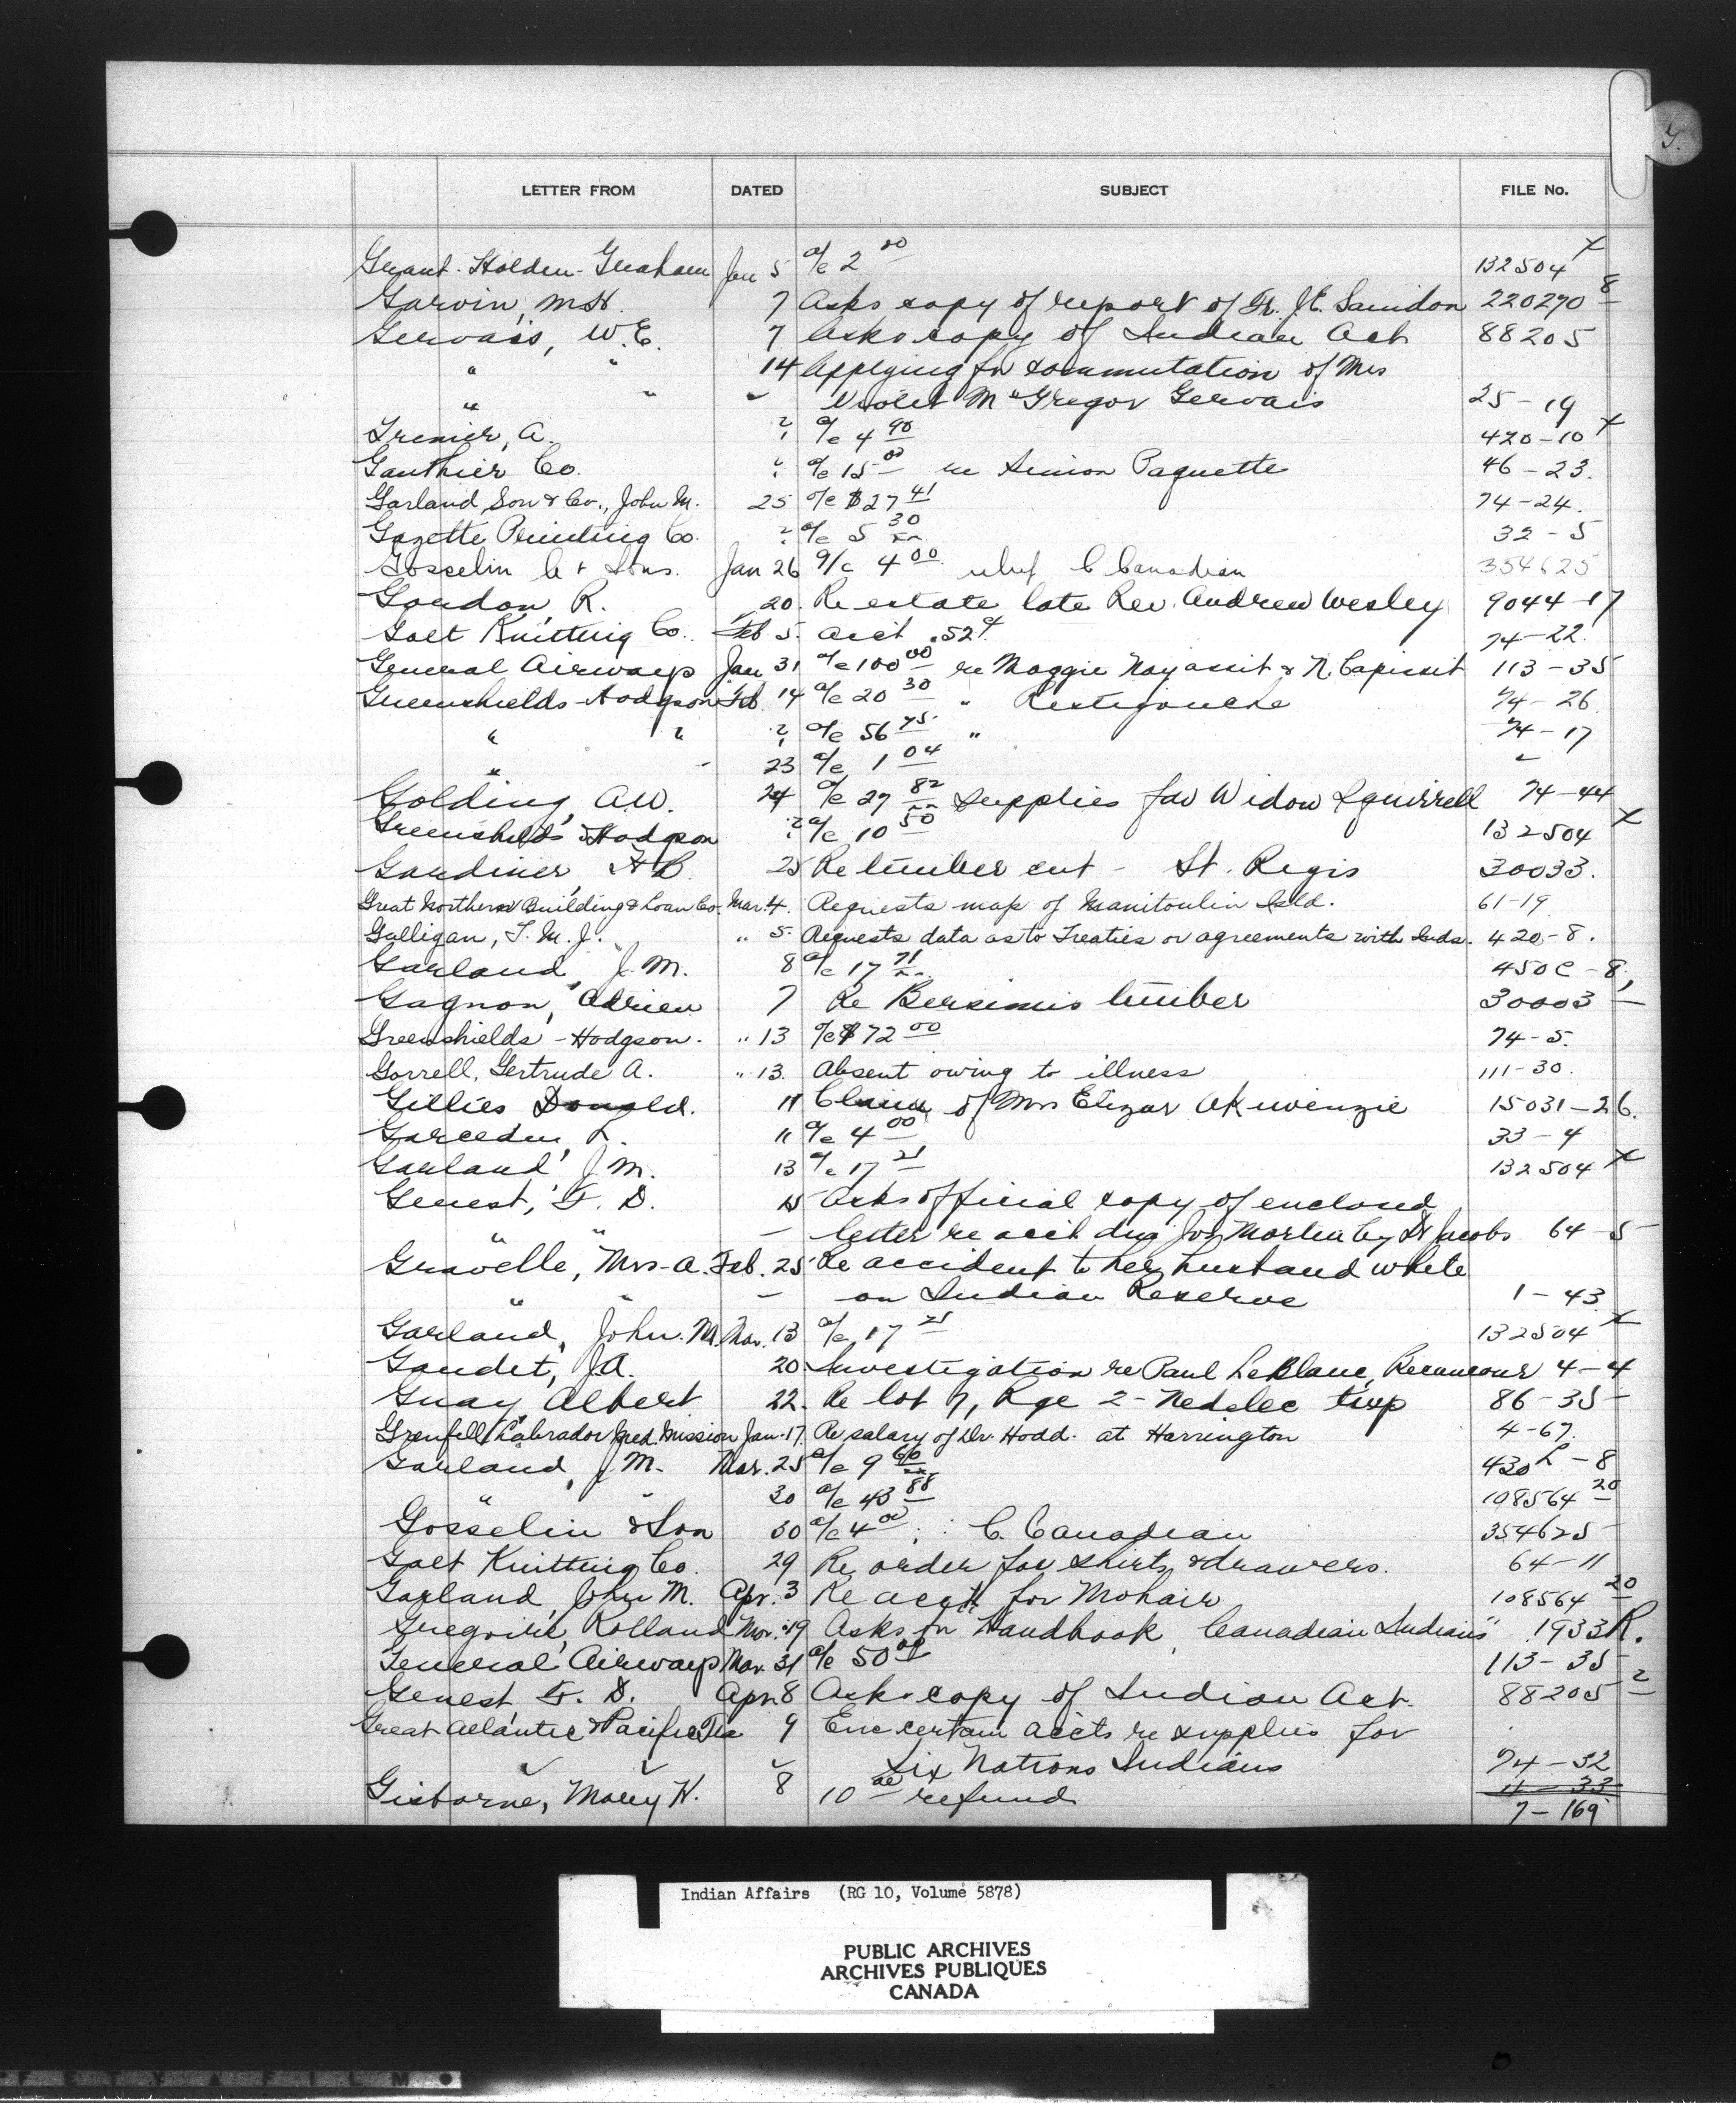 G.
LETTER FROM DATED SUBJECT FILE No.
Grant-Holden-Graham Jan 5 a/c 2 00 132504 x
Garvin, M.H. 7 Asks copy of report of Dr. 220270 8
Gervais, W.E. 7 Asks copy of Indian Act 88205
" " 14 Applying for commutation of Mrs
" " " Violet McGregor Gervais 25-19
Grenier, A. " a/c 4 90 420-10 x
Gauthier Co. " a/c 15 00 re Simon Paquette 46-23.
Garland, Son & Co., John M. 25 a/c $27 41 74-24.
Gazette Printing Co. " a/c 5 30 32-5
Gosselin & Sons. Jan 26 a/c 4 00 relief C Canadian 354625
Gordon, R. 20. Re estate late Rev. Andrew Wesley 9044-17
Galt Knitting Co. Feb 5. acct .52¢ 74-22.
General Airways Jan 31 a/c 100 00 re Maggie Nayassit & N. Capissit 113-35
Greenshields-Hodgson Feb. 14 a/c 20 30 " Restigouche 74-26.
" " " a/c 56 75 " 74-17
" " 23 a/c 1 04 "
Golding, A.W. 24 a/c 27 82 Supplies for Widow Squirrell 74-44
Greenshields Hodgson " a/c 10 50 132504 x
Gardiner, 25 Re timber cut - St. Regis 30033.
Great Northern Building & Loan Co. Mar. 4. Requests map of Manitoulin Isld. 61-19
Galligan, T.M.J. " 5. Requests data as to Treaties or agreements with Inds. 420-8.
Garland, J.M. 8 a/c 17 71 450C-8,
Gagnon, Adrien 7 Re Bersimis timber 30003 -
Greenshields-Hodgson. " 13 a/c $72 00 74-5.
Gorrell, Gertrude A. " 13. Absent owing to illness 111-30.
Gillies Donald. 11 Claim of Mrs Elizar Akiwenzie 15031-26.
11 a/c 4 00 33-4
Garland, J.M. 13 a/c 17 21 132504 x
Genest, F.D. 15 Asks official copy of enclosed
" " - letter re acct due Jos Martin by Dr Jacobs 64-5
Gravelle, Mrs. A. Feb. 25 Re accident to her husband while
" " - on Indian Reserve 1-43
Garland, John M. Mar. 13 a/c 17 21 132504 x
Gaudet, J.A. 20 Investigation re Paul LeBlanc, Becancour 4-4
Guay Albert 22. Re lot 7, Rge 2 - Nedelec twp 86-35
Grenfell Labrador Med. Mission Jan. 17. Re salary of Dr. Hodd. at Harrington 4-67.
Garland, J.M. Mar. 25 a/c 9 60 430L-8
" " 30 a/c 43 88 108564 20
Gosselin & Son 30 a/c 4 00 : : C. Canadian 354625
Galt Knitting Co. 29 Re order for shirts & drawers. 64-11
Garland, John M. Apr. 3 Re acct for Mohair 108564 20
Gregoire, Rolland Mar. 19 Asks for Handbook, Canadian Indians" 1933R.
General Airways Mar. 31 a/c 50 00 113-35
Genest F.D. Apr. 8 Asks copy of Indian Act. 88205 2
Great Atlantic & Pacific Tea 9 Enc certain accts re supplies for
" " " Six Nations Indians 74-32
11-33
Gisborne, Mary H. 8 10 00 refund 7-169
Indian Affairs (RG 10, Volume 5878)
PUBLIC ARCHIVES
ARCHIVES PUBLIQUES
CANADA